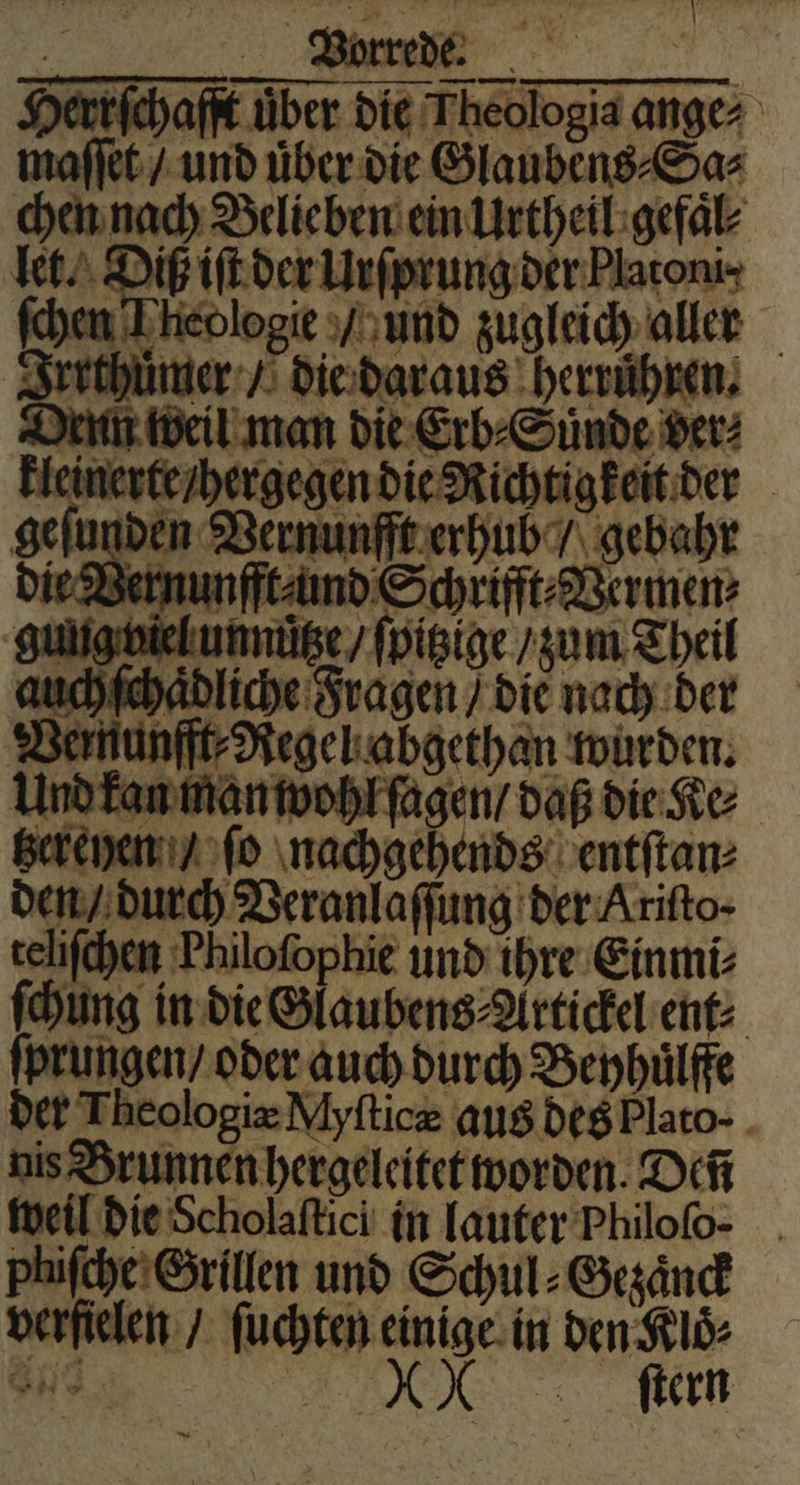 Vorrede.
Herrſchafft uͤber die Theologia ange⸗
maſſet / und uͤber die Glaubens⸗Sa⸗
chen nach Belieben ein Urtheil gefaͤl⸗
let. Diß iſt der Urſprung der Platoni⸗
ſchen Theologie / und zugleich aller
Irrthuͤmer / die daraus herruͤhren.
Denn weil man die Erb⸗Suͤnde ver⸗
kleinerte / hergegen die Richtigkeit der
geſunden Vernunfft erhub / gebahr
die Vernunfft⸗und Schrifft⸗Vermen⸗
gung viel unnuͤtze / ſpitzige / zum Theil
auch ſchaͤdliche Fragen / die nach der
Vernunfft⸗Regel abgethan wurden.
Und kan man wohl ſagen / daß die Ke⸗
tzereyen / ſo nachgehends entſtan⸗
den / durch Veranlaſſung der Ariſto-
teliſchen Philoſophie und ihre Einmi⸗
ſchung in die Glaubens⸗Artickel ent⸗
ſprungen / oder auch durch Beyhuͤlffe
der Theologiæ Myſticæ aus des Plato-
nis Brunnen hergeleitet worden. Deñ
weil die Scholaſtici in lauter Philoſo-
phiſche Grillen und Schul⸗Gezaͤnck
verfielen / ſuchten einige in den Kloͤ⸗
)( )( ſtern